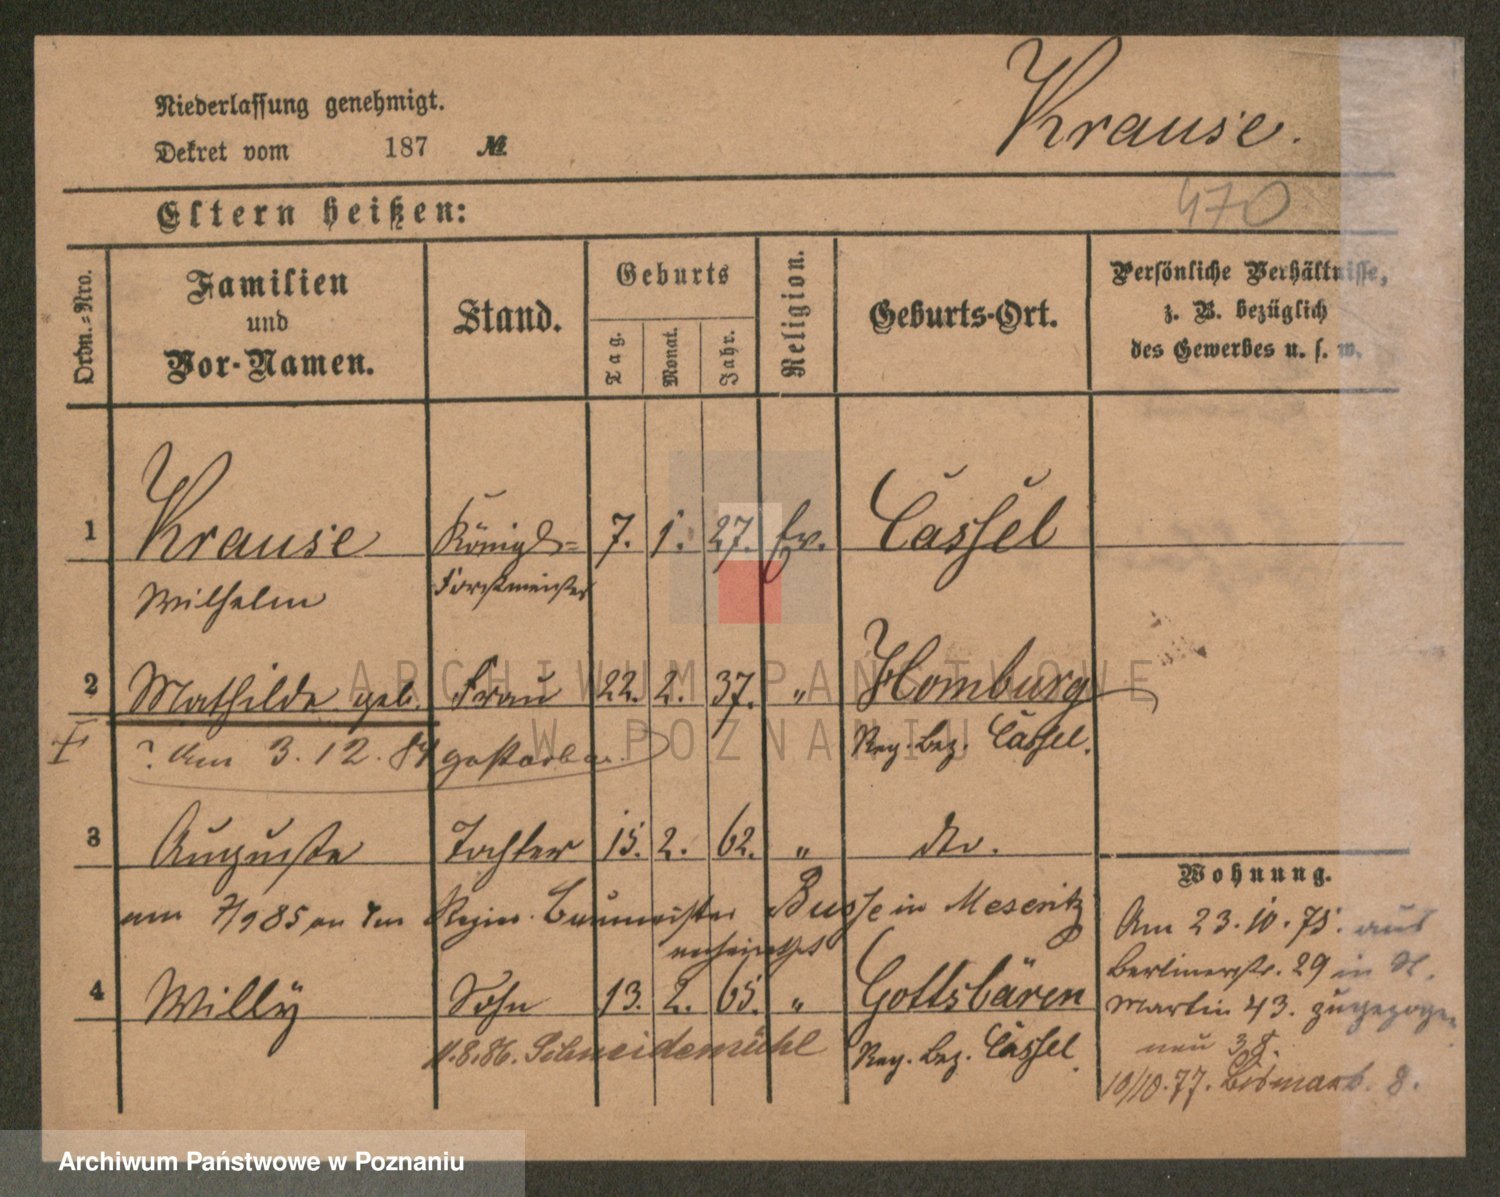 Krause.
Niederlassung genehmigt.
Dekret vom 187 №
470
Eltern heißen:
Ordn.-Nro.
Familien
und
Vor-Namen.
Stand.
Geburts
Tag.
Monat.
Jahr.
Religion.
Geburts-Ort.
Persönliche Verhältnisse,
z. B. bezüglich
des Gewerbes u. s. w.
1 Krause Königl= 7. 1. 27. Ev. Cassel
Wilhelm Forstmeister
2 Mathilde geb. Frau 22. 2. 37. " Homburg
Reg. Bez. Cassel.
am 3.12.84 gestorben
3 Auguste Tochter 15. 2. 62. " do.
am 7/9 85 an den Regier. Baumeister Busse in Meseritz
verheirathet
4 Willy Sohn 13. 2. 65. " Gottsbüren
Reg. Bez. Cassel
11.8.86. Schneidemühl
Wohnung.
Am 23.10.75. aus
Berlinerstr. 29 in St.
Martin 43. zugezogen
neu 38.
10/10.77. Bismark. 8.
ARCHIWUM PAŃSTWOWE
W POZNANIU
Archiwum Państwowe w Poznaniu